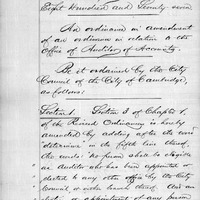 Eight hundred and Seventy seven
An ordinance in amendment
of an ordinance in relation to the
Office of Auditor of Accounts.
Be it ordained by the City
Council of the City of Cambridge,
as follows:
Section 1. Section 3 of Chapter
of the Revised Ordinances is hereby
amended by adding after the word
determine in the fifth line thereof,
the words: No person shall be eligible
as Auditor who has been appointed or
elected to any other office by the City
Council or either branch thereof. And an
or appointment of any person